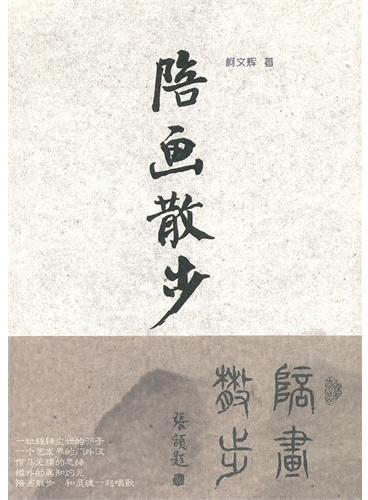 柯文辉 著
陪画散步
陪畫
散步
張頷題
一粒辗转尘世的芥子
一个艺术界的门外汉
信马无缰的思绪
槛外的真知灼见
陪画散步 和灵魂一起唱歌